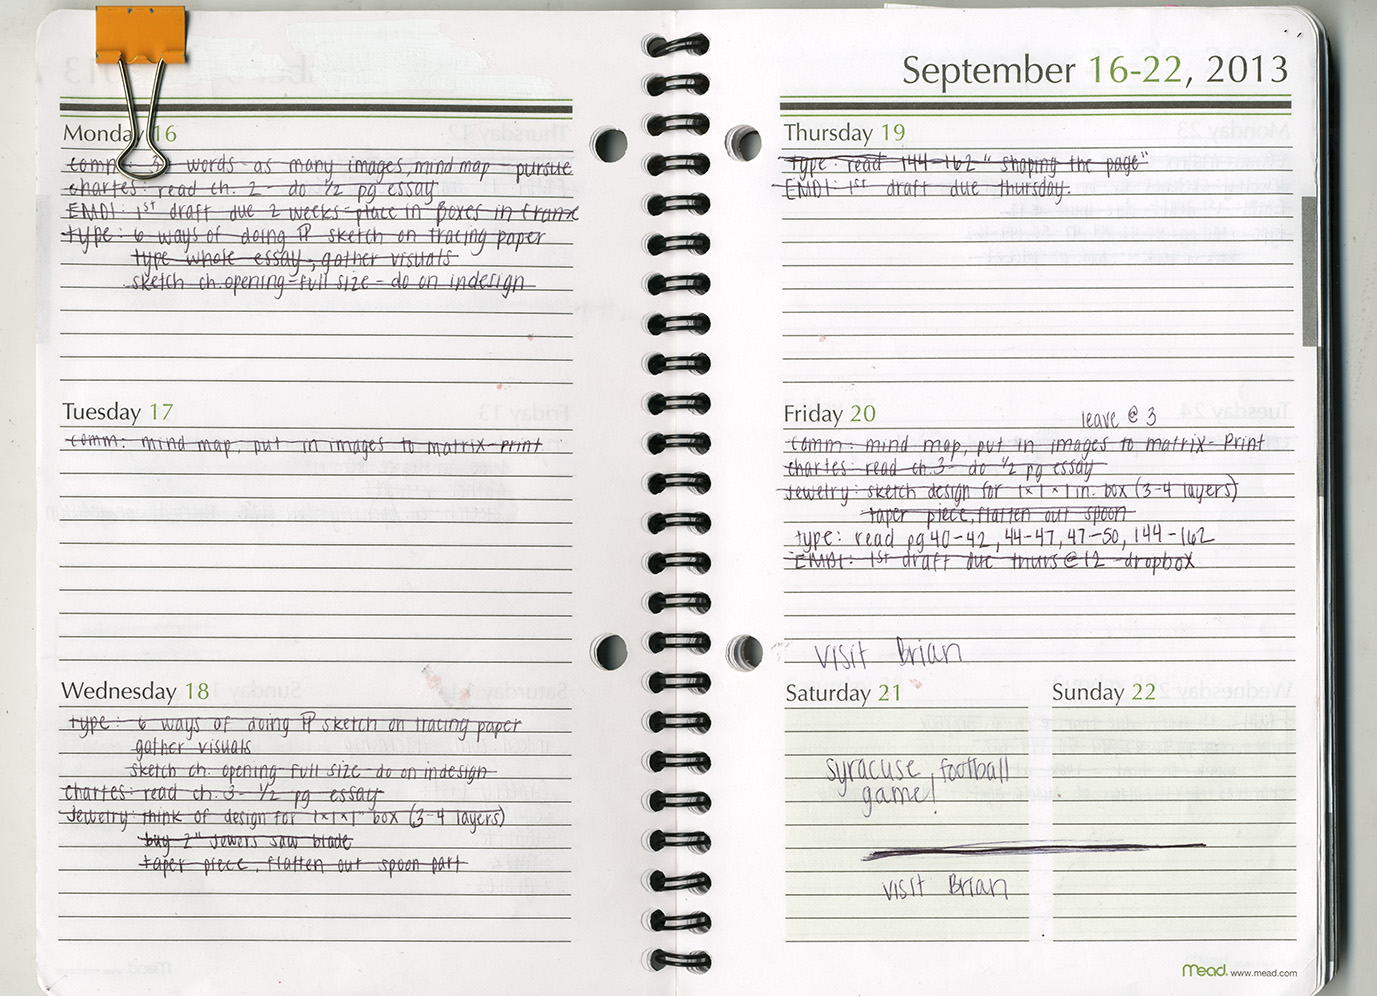 Monday 16
comm: 3 words - as many images, mind map - pursue
chartes: read ch. 2 - do 1/2 pg essay
EMDI: 1st draft due 2 weeks - place in boxes in
type: 6 ways of doing TP sketch on tracing paper
type whole essay, gather visuals
sketch ch. opening - full size - do on indesign
Tuesday 17
comm: mind map, put in images to matrix - print
Wednesday 18
type: 6 ways of doing TP sketch on tracing paper
gather visuals
sketch ch. opening full size - do on indesign
chartes: read ch. 3 - 1/2 pg essay
Jewelry: think of design for 1x1x1" box (3-4 layers)
buy 2" jewers saw blade
taper piece, flatten out spoon part
September 16-22, 2013
Thursday 19
type: read 144-162 "shaping the page"
EMDI: 1st draft due thursday.
Friday 20
leave @ 3
comm: mind map, put in images to matrix - Print
chartes: read ch. 3 - do 1/2 pg essay
Jewelry: sketch design for 1x1x1 in. box (3-4 layers)
taper piece, flatten out spoon
type: read pg 40-42, 44-47, 47-50, 144-162
EMDI: 1st draft due thurs @ 12 - dropbox
visit Brian
Saturday 21
Sunday 22
syracuse football
game!
visit Brian
Mead. www.mead.com